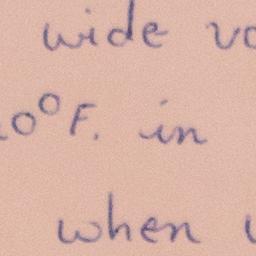 wide
0°F. in
when